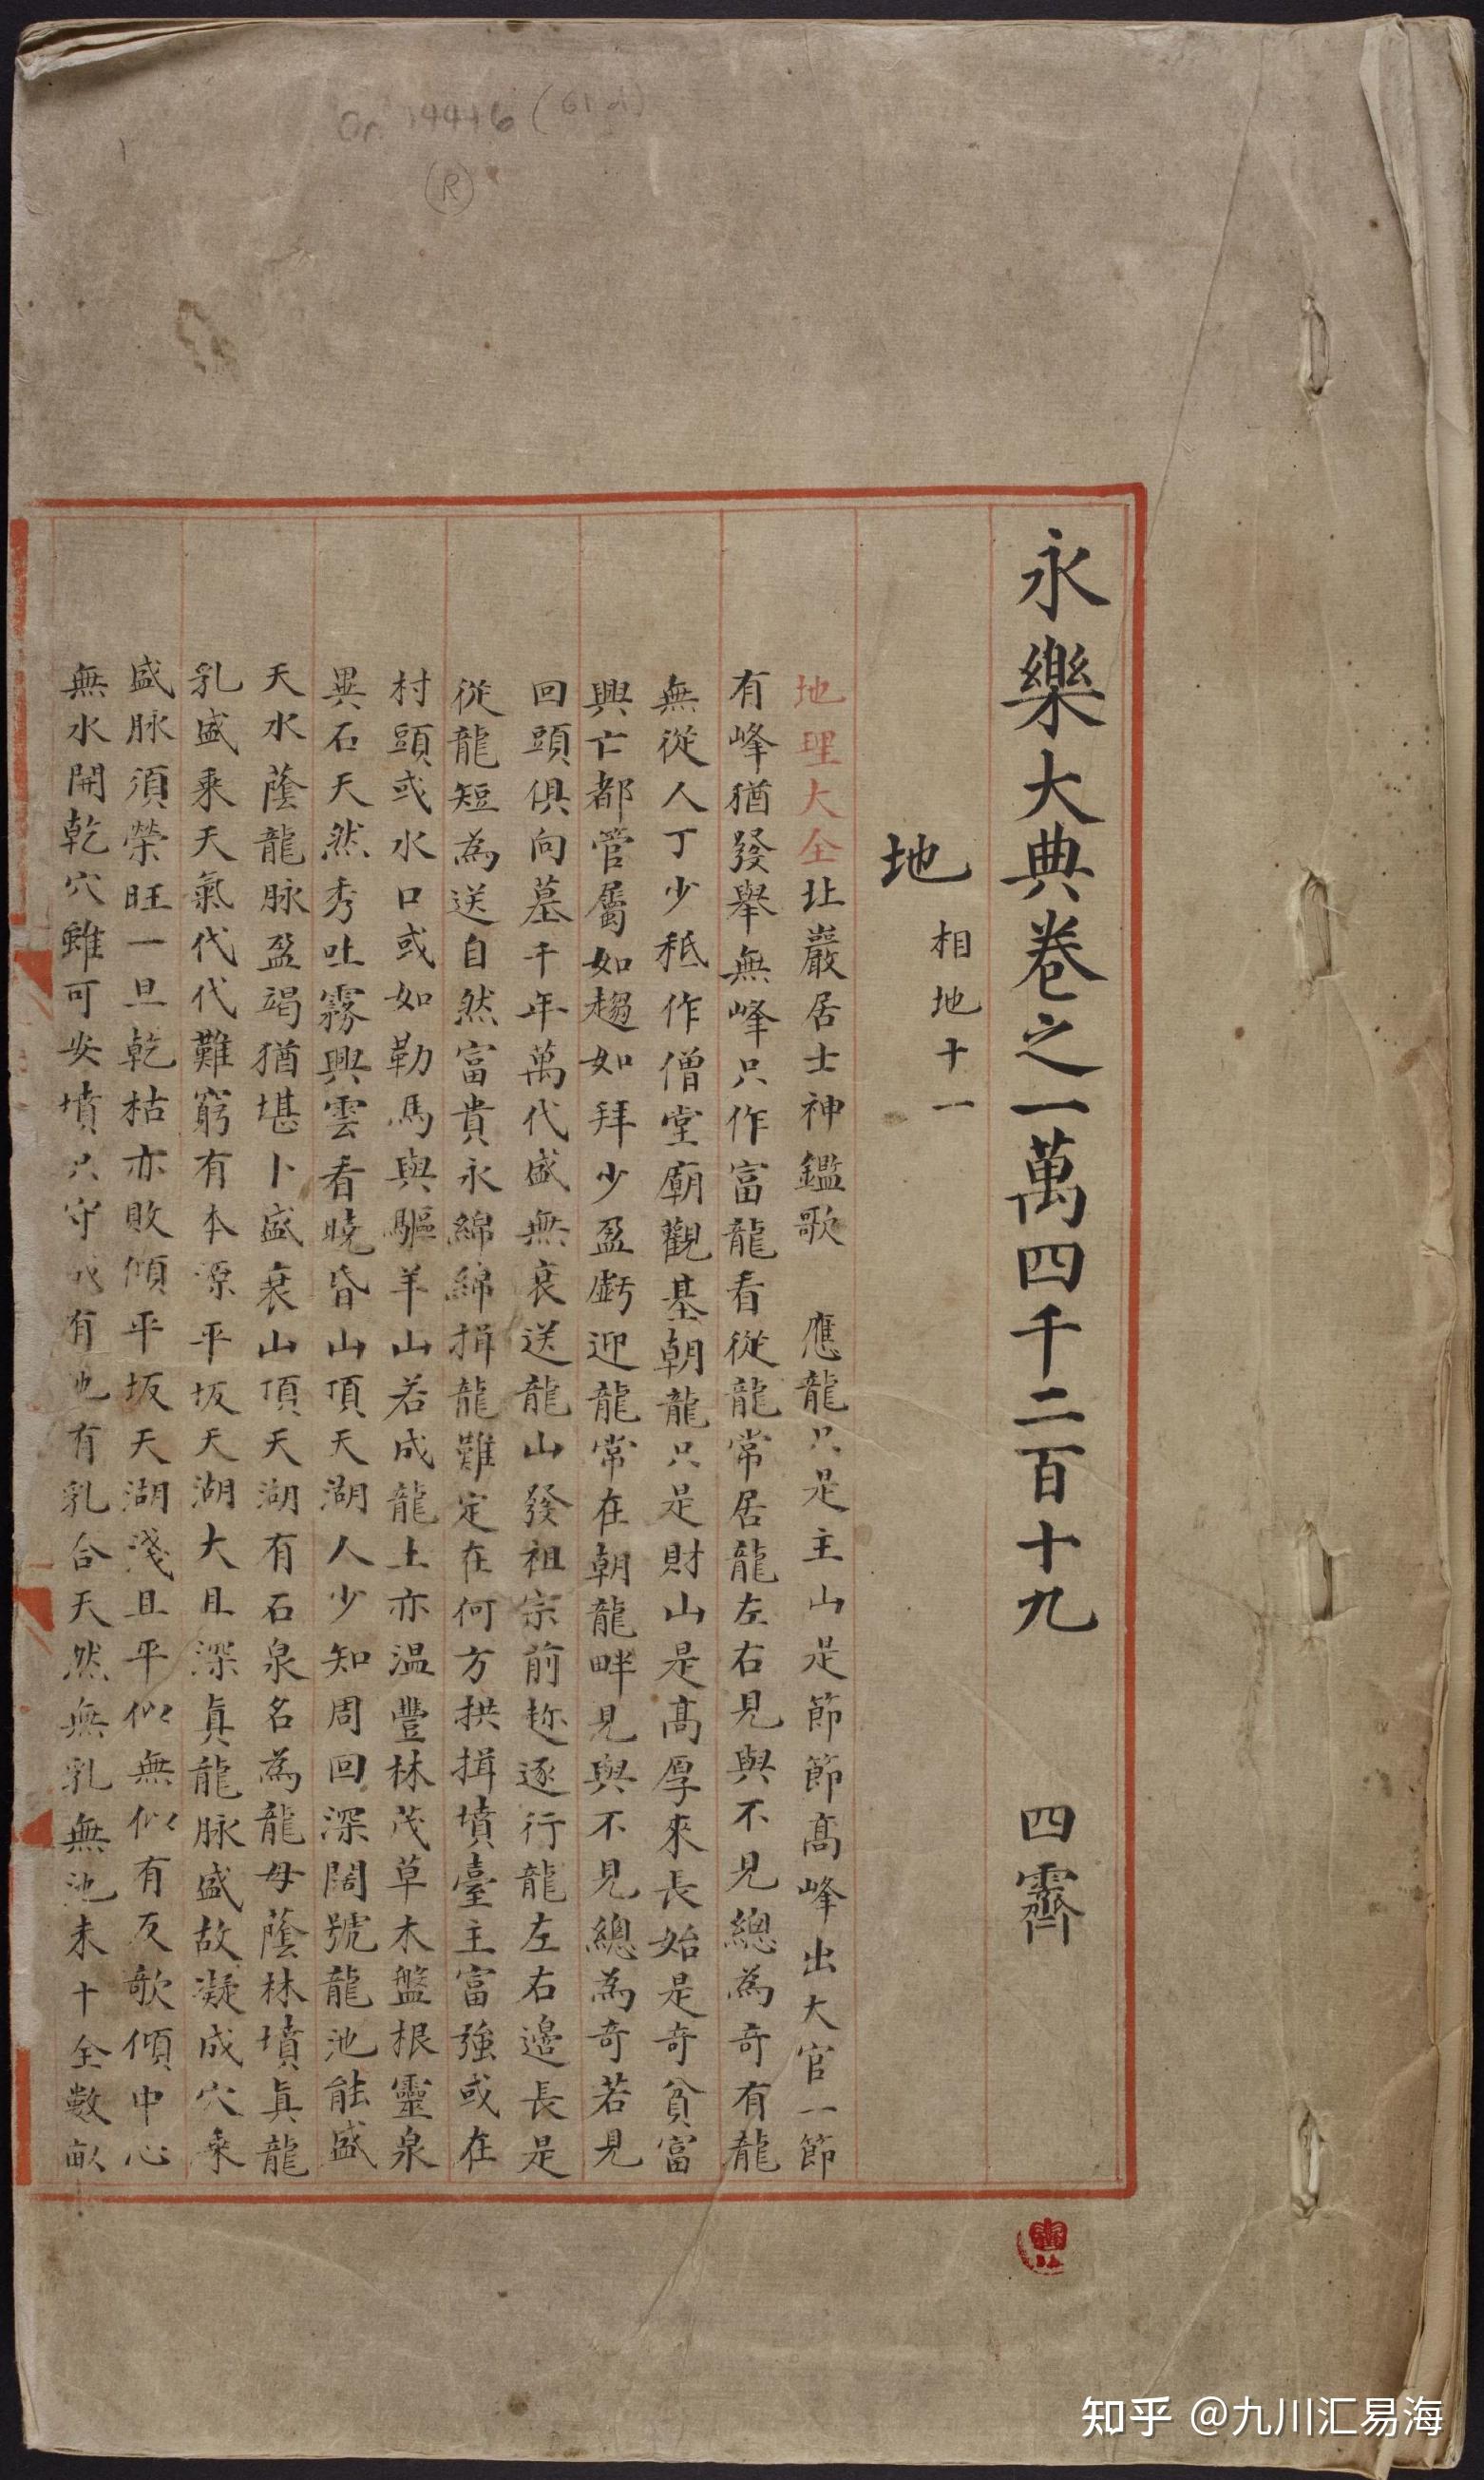 Or. 14446
R
永樂大典卷之一萬四千二百十九 四霽
地 相地十一
地理大全北巖居士神鑑歌 應龍只是主山是節節髙峰出大官一節
有峰猶發舉無峰只作富龍看從龍常居龍左右見與不見總為奇有龍
無從人丁少秪作僧堂廟觀基朝龍只是財山是髙厚來長始是竒貧富
興亡都管屬如趨如拜少盈虧迎龍常在朝龍畔見與不見總為奇若見
回頭俱向墓千年萬代盛無衰送龍山發祖宗前趂逐行龍左右邉長是
從龍短為送自然富貴永綿綿揖龍難定在何方拱揖墳臺主富強或在
村頭或水口或如勒馬與驅羊山若成龍土亦温豐林茂草木盤根靈泉
異石天然秀吐霧興雲看曉昏山頂天湖人少知周回深闊號龍池能盛
天水蔭龍脉盈竭猶堪卜盛衰山頂天湖有石泉名為龍母蔭林墳真龍
乳盛乘天氣代代難窮有本源平坂天湖大且深真龍脉盛故凝成穴乘
盛脉須榮旺一旦乾枯亦敗傾平坂天湖淺且平似無似有反欹傾中心
無水開乾穴雖可安墳只守成有池有乳合天然無乳無池未十全數畝
知乎 @九川汇易海